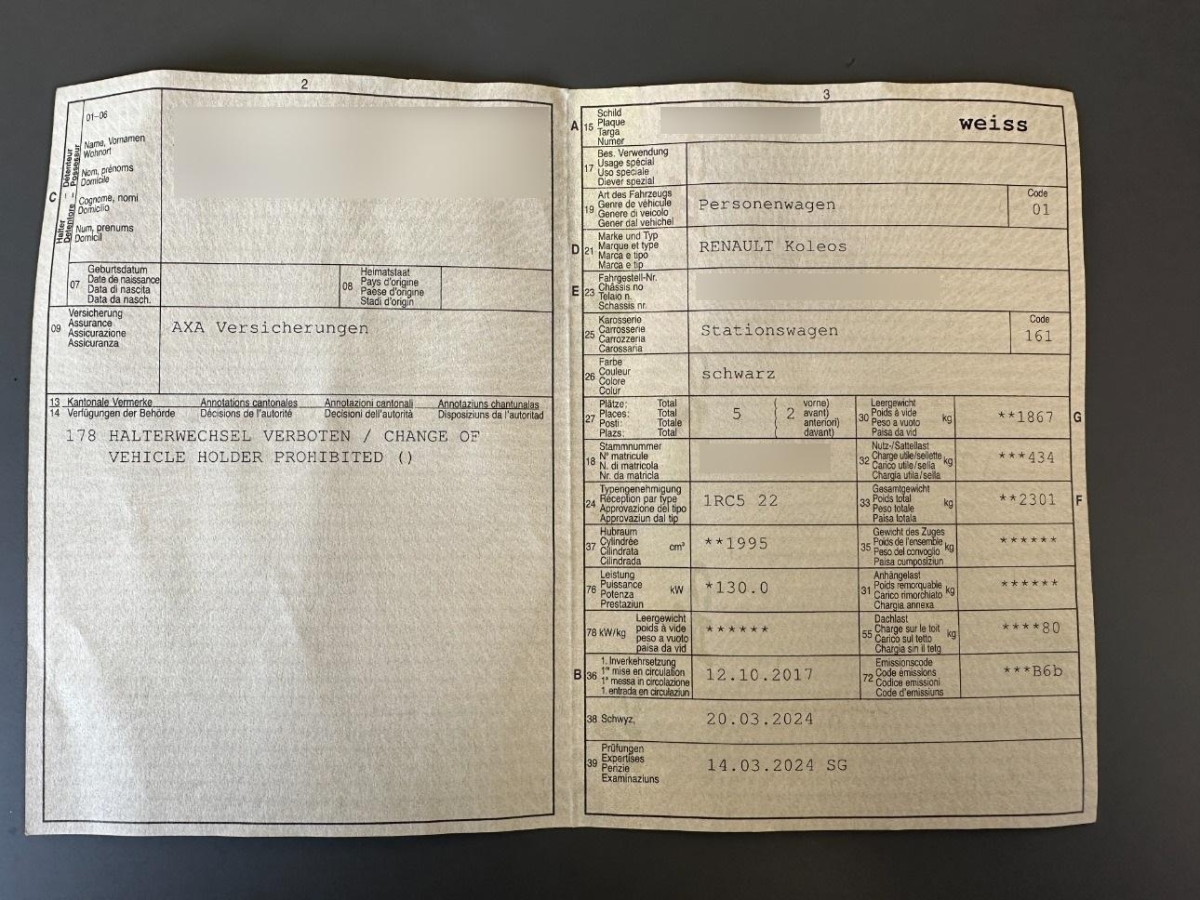 2
01-06
C
Halter
Détenteur
Detentore
Possessur
Name, Vornamen
Wohnort
Nom, prénoms
Domicile
Cognome, nomi
Domicilio
Num, prenums
Domicil
07
Geburtsdatum
Date de naissance
Data di nascita
Data da nasch.
08
Heimatstaat
Pays d'origine
Paese d'origine
Stadi d'origin
09
Versicherung
Assurance
Assicurazione
Assicuranza
AXA Versicherungen
13 Kantonale Vermerke Annotations cantonales Annotazioni cantonali Annotaziuns chantunalas
14 Verfügungen der Behörde Décisions de l'autorité Decisioni dell'autorità Disposiziuns da l'autoritad
178 HALTERWECHSEL VERBOTEN / CHANGE OF
VEHICLE HOLDER PROHIBITED ()
3
A 15
Schild
Plaque
Targa
Numer
weiss
17
Bes. Verwendung
Usage spécial
Uso speciale
Diever spezial
19
Art des Fahrzeugs
Genre de véhicule
Genere di veicolo
Gener dal vehichel
Personenwagen
Code
01
D 21
Marke und Typ
Marque et type
Marca e tipo
Marca e tip
RENAULT Koleos
E 23
Fahrgestell-Nr.
Châssis no
Telaio n.
Schassis nr.
25
Karosserie
Carrosserie
Carrozzeria
Carossaria
Stationswagen
Code
161
26
Farbe
Couleur
Colore
Colur
schwarz
27
Plätze: Total
Places: Total
Posti: Totale
Plazs: Total
5
2
vorne)
avant)
anteriori)
davant)
30
Leergewicht
Poids à vide
Peso a vuoto
Paisa da vid
kg
**1867
G
18
Stammnummer
N° matricule
N. di matricola
Nr. da matricla
32
Nutz-/Sattellast
Charge utile/sellette
Carico utile/sella
Chargia utila/sella
kg
***434
24
Typengenehmigung
Réception par type
Approvazione del tipo
Approvaziun dal tip
1RC5 22
33
Gesamtgewicht
Poids total
Peso totale
Paisa totala
kg
**2301
F
37
Hubraum
Cylindrée
Cilindrata
Cilindrada
cm³
**1995
35
Gewicht des Zuges
Poids de l'ensemble
Peso del convoglio
Paisa cumposiziun
kg
******
76
Leistung
Puissance
Potenza
Prestaziun
kW
*130.0
31
Anhängelast
Poids remorquable
Carico rimorchiato
Chargia annexa
kg
******
78 kW/kg
Leergewicht
poids à vide
peso a vuoto
paisa da vid
******
55
Dachlast
Charge sur le toit
Carico sul tetto
Chargia sin il tetg
kg
****80
B 36
1. Inverkehrsetzung
1re mise en circulation
1a messa in circolazione
1. entrada en circulaziun
12.10.2017
72
Emissionscode
Code émissions
Codice emissioni
Code d'emissiuns
***B6b
38 Schwyz,
20.03.2024
39
Prüfungen
Expertises
Perizie
Examinaziuns
14.03.2024 SG